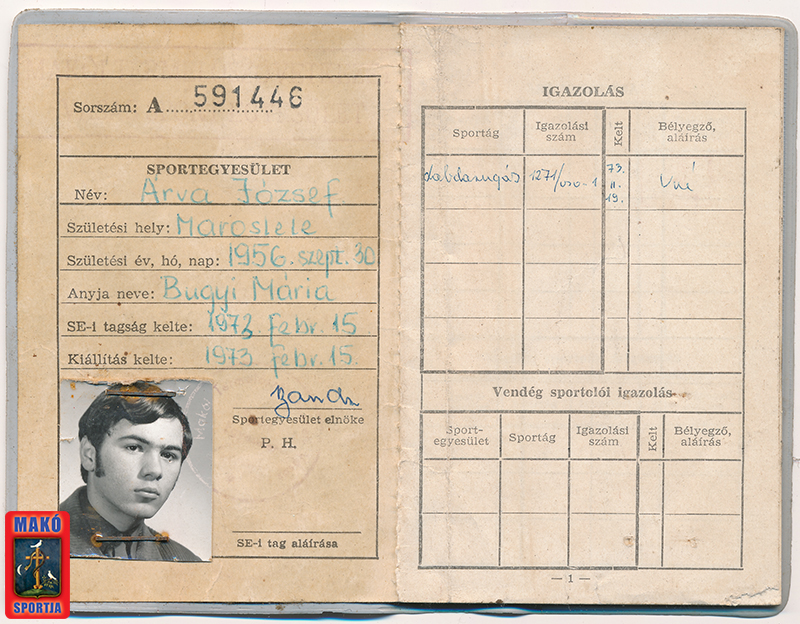 Sorszám: A 591446
SPORTEGYESÜLET
Név: Árva József
Születési hely: Maroslele
Születési év, hó, nap: 1956. szept. 30
Anyja neve: Bugyi Mária
SE-i tagság kelte: 1973. febr. 15
Kiállítás kelte: 1973 febr. 15.
Sportegyesület elnöke
P. H.
Makó
SE-i tag aláírása
MAKÓ
SPORTJA
IGAZOLÁS
Sportág Igazolási szám Kelt Bélyegző, aláírás
labdarugás 1271/uso-1 73. II. 19.
Vendég sportolói igazolás
Sport-egyesület Sportág Igazolási szám Kelt Bélyegző, aláírás
— 1 —